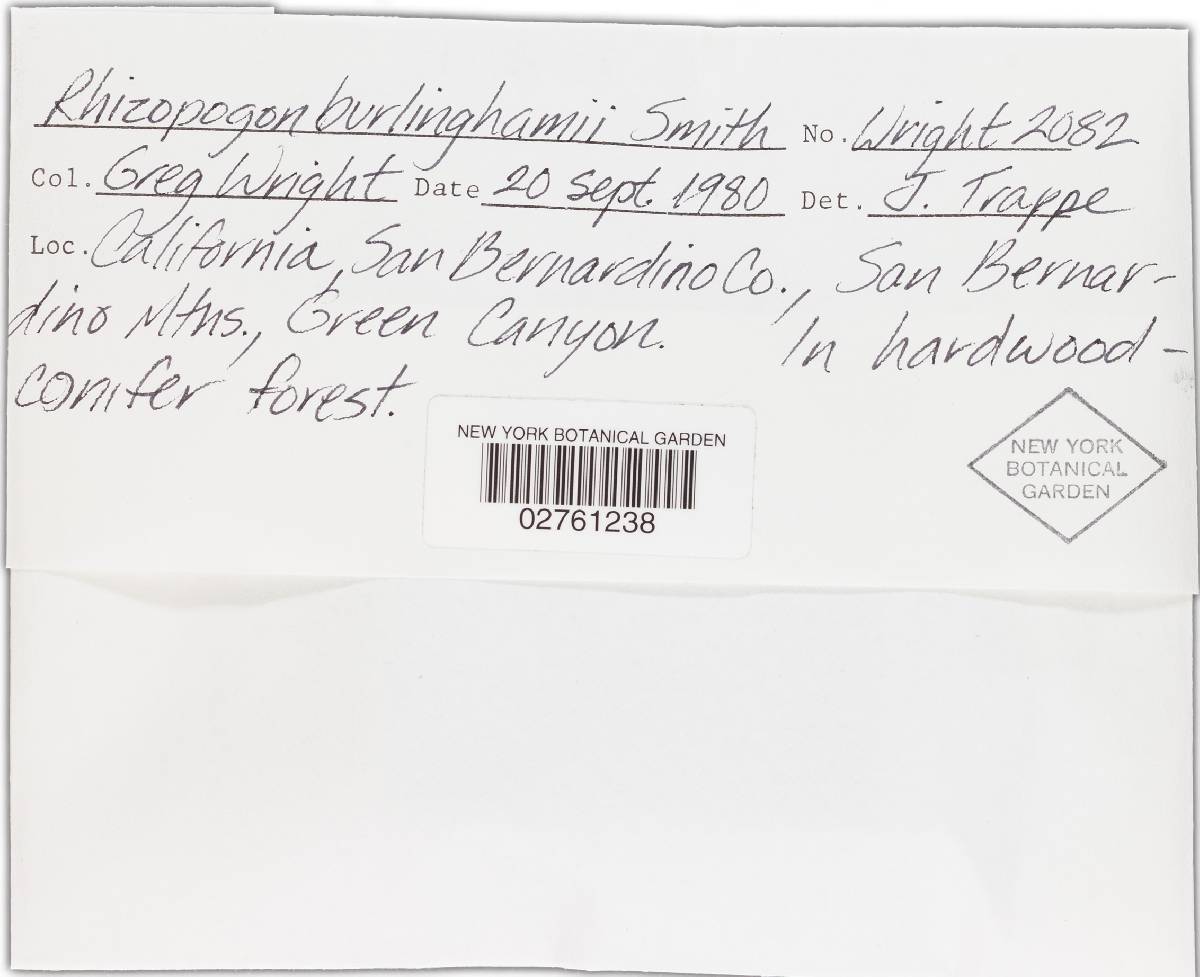 Rhizopogon burlinghamii Smith No. Wright 2082
Col. Greg Wright Date 20 Sept. 1980 Det. J. Trappe
Loc. California, San Bernardino Co., San Bernar-
dino Mtns., Green Canyon. In hardwood-
conifer forest.
NEW YORK BOTANICAL GARDEN
02761238
NEW YORK
BOTANICAL
GARDEN